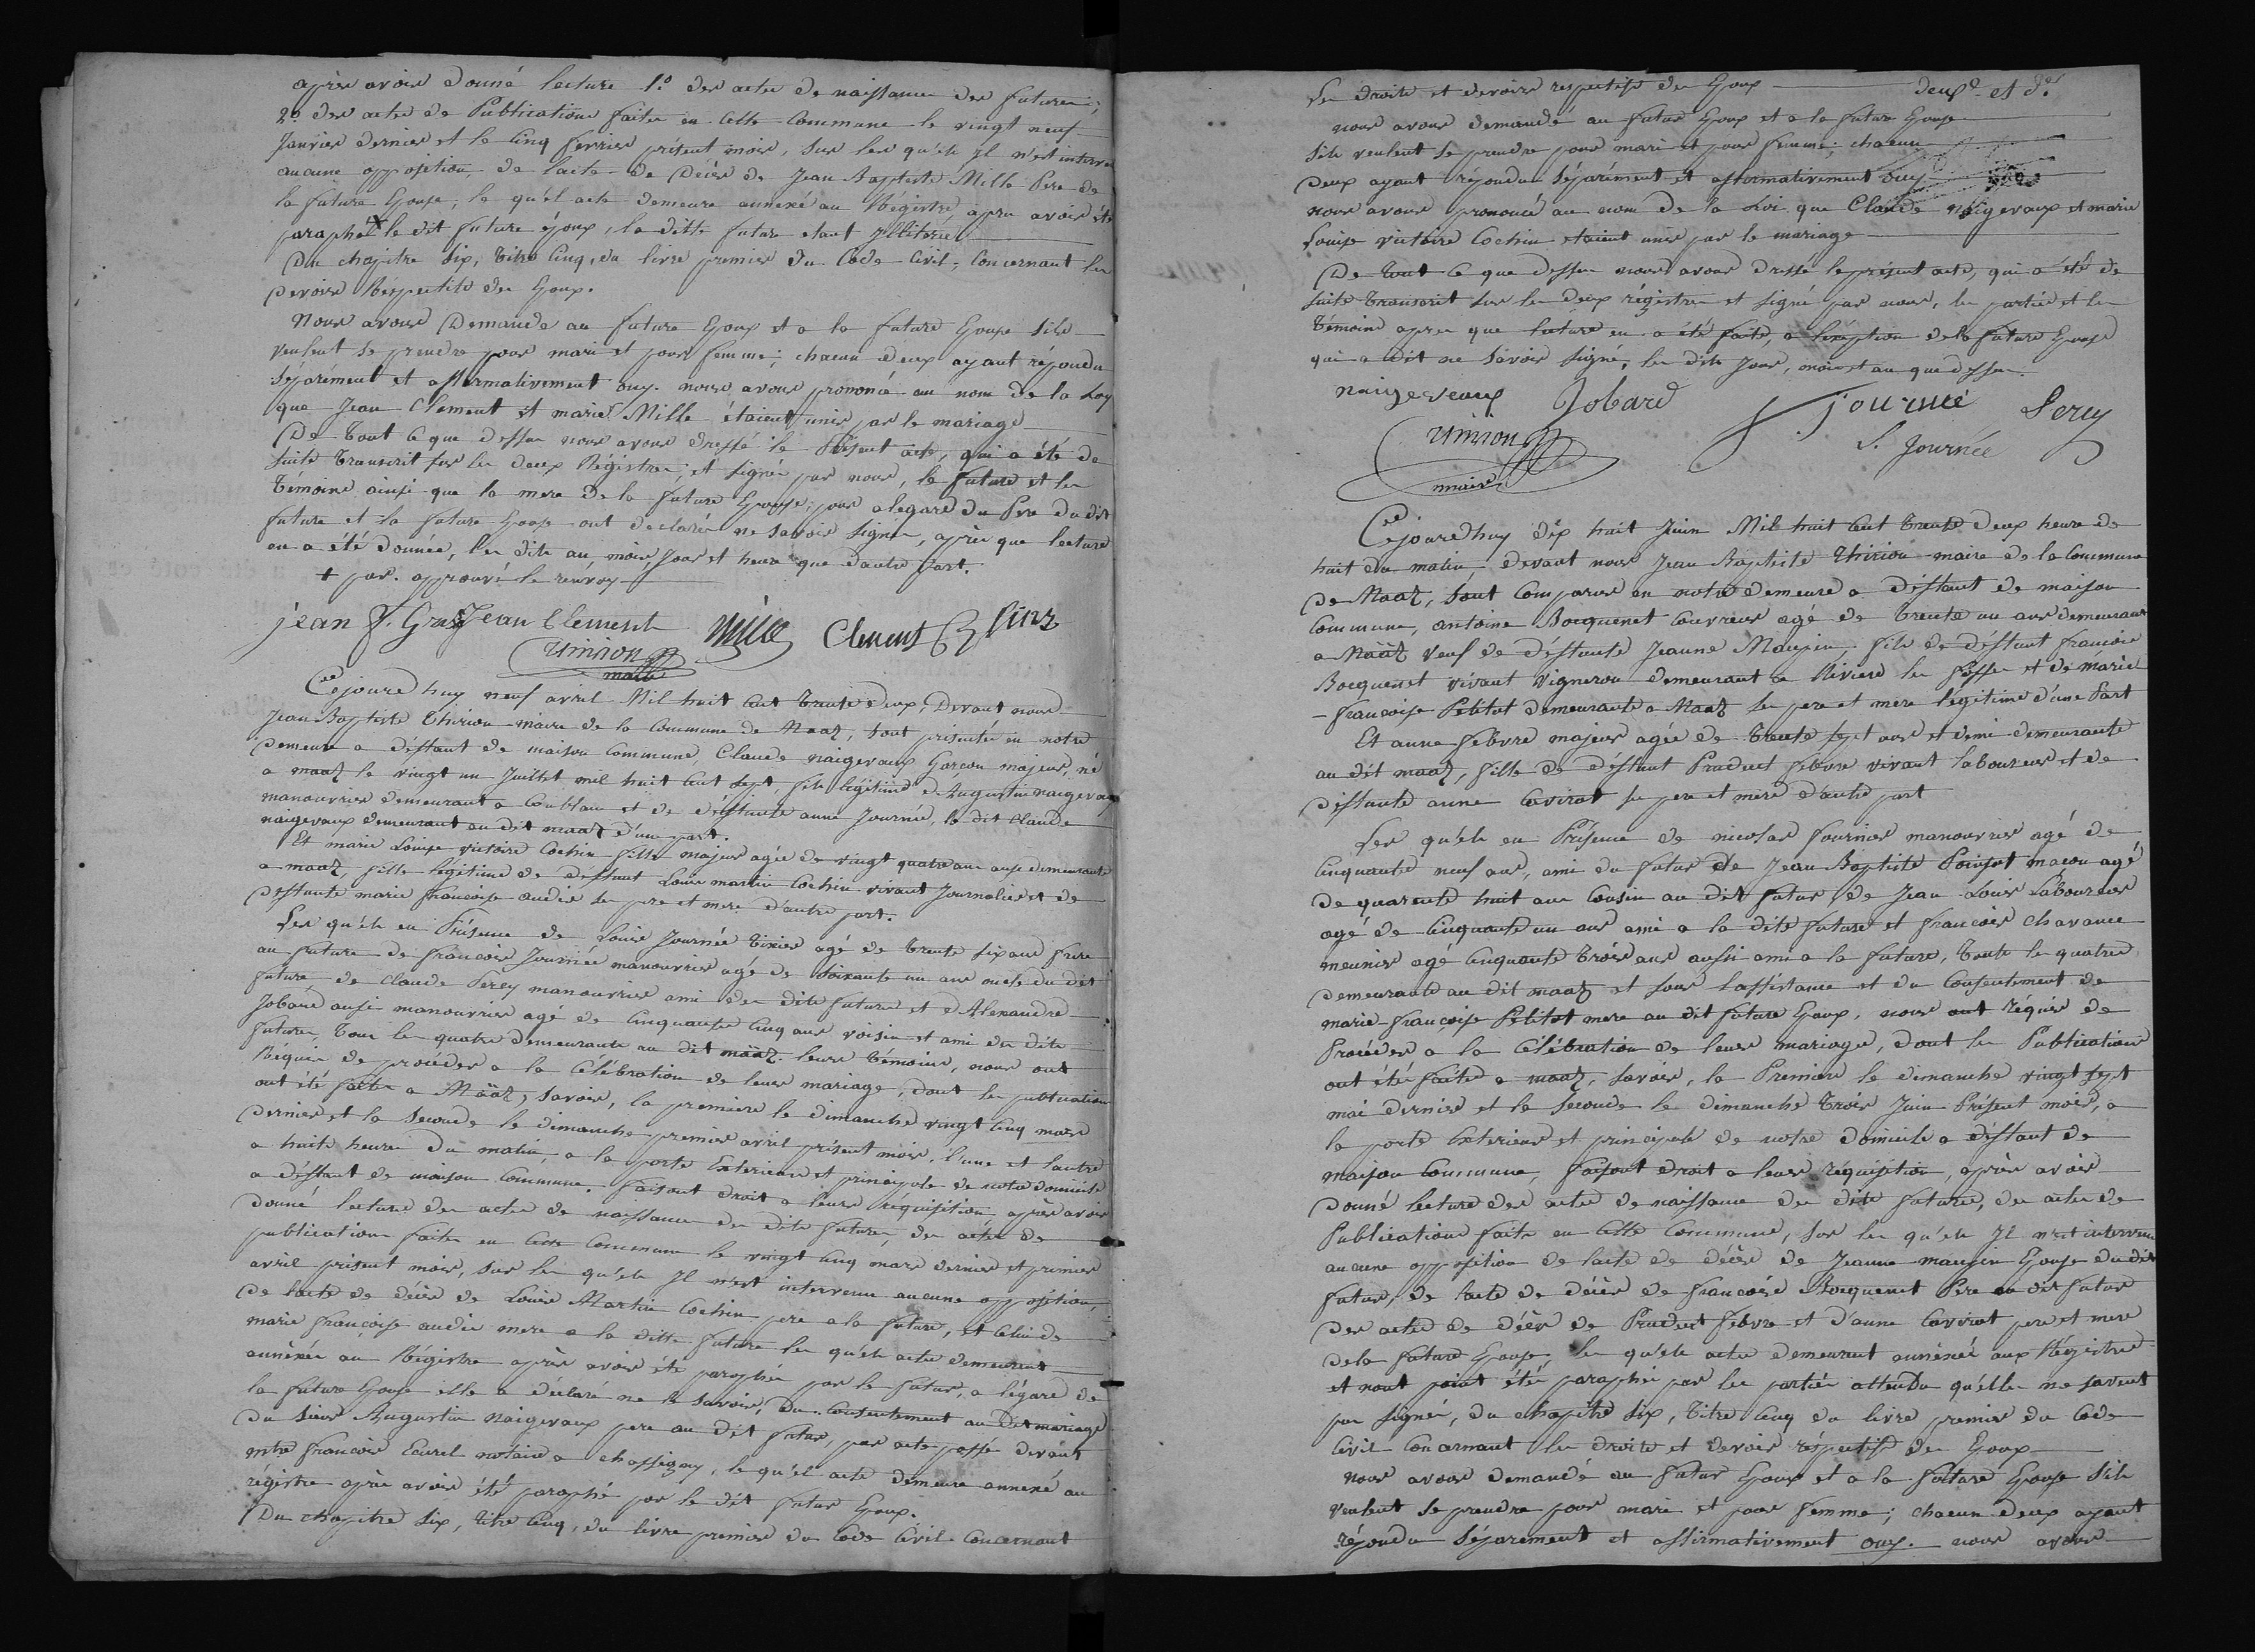 après avoir donné lecture 1.º des actes de naissance des futures,
2º des actes de Publications faites en cette Commune le vingt neuf
Janvier dernier et le Cinq fevrier présent mois, sur les qu'els Il n'est interven
aucune opposition, de l'acte de Décès de Jean Baptiste Mille Pere de
la future Epouse, le qu'el acte demeure annexé au Registre, apres avoir été
paraphé + le dit future époux, la ditte future etant Illiterée
Du chapitre Six, Titre Cinq, du livre premier du Code Civil, Concernant les
Devoirs Réspectifs des Epoux.
Nous avons Demandé au future Epoux et a la future Epouse s'ils
veulent se prendre pour mari et pour femme; chacun d'eux ayant répondu
Séparément et affirmativement ouy. nous avons prononcé au nom de la Loy
que Jean Clement et marie Mille étaient unis par le mariage
De tout ce que dessus nous avons dressé le Présent acte, qui a été de
suite transcrit sur les deux Régistres, et signé par nous, le future et les
témoins ainsi que la mere de la future Epouse, pour a l'egard du Pere du dit
future et la future Epouse ont declaré ne savoir signer, après que lecture
en a été donnée, les dits an, mois, Jour et heure que d'autre part.
+ par. approuvé le renvoy
jean J. Gras Jean Clement Mille Clement
Thirion
maire
Cejourd'huy neuf avril Mil huit cent trente deux, Devant nous
Jean Baptiste Thirion maire de la Commune de Maatz, sont présentés en notre
Demeure a déffaut de maison Commune, Claude naigeveaux Garçon majeur, né
a maatz le vingt un Juillet mil huit cent sept, fils légitime d'Augustin naigeveaux
manouvrier demeurant a Coublanc et de déffunte anne Journée, le dit Claude
naigevaux demeurant au dit maatz d'une part.
Et marie Louise victoire Cochin fille majeur agée de vingt quatre ans demeurante
a maatz, fille légitime de deffunt Louis martin Cochin vivant Journalier et de
deffunte marie françoise audié ses pere et mere d'autre part.
Les qu'els en Présence de Louis Journée Tixier agé de trente six ans frere
au future de françois Journée manouvrier agé de soixante un ans oncle du dit
future de claude Perey manouvrier ami des dits futures et d'Alexandre
Jobard aussi manouvrier agé de Cinquante Cinq ans voisin et ami des dits
futures, tous les quatre demeurants au dit maatz leurs témoins, nous ont
Réquis de procéder a la Célébration de leurs mariage, dont les publications
ont été faites a Maätz, savoir, la premiere le dimanche vingt Cinq mars
dernier et la seconde le dimanche premier avril présent mois, l'une et l'autre
a huite heures du matin, a la porte Exterieure et principale de notre domicile
a déffaut de maison Commune. faisant droit a leurs réquisition apres avoir
donné lecture des actes de naissance des dits futures, des actes de
publications faites en cette Commune le vingt Cinq mars dernier et premier
avril présent mois, sur les qu'els Il n'est intervenu aucune opposition,
de l'acte de décès de Louis Martin Cochin pere a la future, et celui de
marie françoise audié mere a la ditte future les qu'els actes demeurent
annéxés au Régistre après avoir été paraphé par le futur, a l'égard de
la future Epouse elle a déclaré ne le savoir, Du Consentement au dit mariage
du sieur Augustin Naigevaux pere au dit futur, par acte passé devant
mtre françois Caurel notaire a chassigny, le qu'el acte demeure annexé au
régistre après avoir été paraphé par le dit futur Epoux.
Du chapitre Six, titre Cinq, du livre premier du Code Civil Concernant
Les droits et devoirs respectifs des Epoux
nous avons demandé au futur Epoux et a la future Epouse
s'ils veulent se prendre pour mari et pour femme; chacun
d'eux ayant répondu séparément et affirmativement ouy
nous avons prononcé au nom de la Loi que Claude naigevaux et marie
Louise victoire Cochin etaient unis par le mariage
De tout ce que dessus nous avons dressé le présent acte, qui a été de
suite transcrit sur les deux régistres et signé par nous, les parties et les
témoins apres que lecture en a été faite, a l'exéption de la future Epouse
qui a dit ne savoir signé, les dits Jour, mois et an que dessus.
naigeveaux Jobard f. journée Perey
Thirion L. Journée
maire
Cejourd'huy dix huit Juin Mil huit Cent trente deux heure de
huit du matin, devant nous Jean Baptiste Thirion maire de la Commune
de Maatz, sont Comparus en notre demeure a déffaut de maison
Commune, antoine Bocquenet Couvreur agé de trente un ans demeurant
a Maätz veuf de déffunte Jeanne Maupin, fils de déffunt françois
Bocquenet vivant vigneron demeurant a Riviere les fosses et de marie
françoise Petitot demeurante a Maatz ses pere et mere légitime d'une Part
Et anne febvre majeur agée de trente sept ans et demi demeurante
au dit maatz, fille de deffunt Prudent febvre vivant laboureur et de
déffunte anne Cavirot ses pere et mere d'autre part
Les qu'els en Présence de nicolas fournier manouvrier agé de
Cinquante neuf ans, ami du futur de Jean Baptiste Poinsot maçon agé
de quarente huit ans Cousin au dit futur, de Jean Louis Laboureur
agé de Cinquante un ans ami a la dite future et françois chavance
meunier agé Cinquante trois ans aussi ami a la future, toute les quatres
demeurants au dit maatz et sous l'assistance et du Consentement de
marie françoise Petitot mere au dit future Epoux, nous ont réquis de
Procéder a la Célébration de leurs mariage, dont les Publications
ont été faites a maatz, savoir, la Premiere le dimanche vingt sept
mai dernier et la seconde le dimanche trois Juin Présent mois, a
la porte Exterieure et principale de notre domicile a déffaut de
maison Commune, faisant droit a leurs réquisition, après avoir
donné lecture des actes de naissance des dits futures, des actes de
Publications faites en cette Commune, sur les qu'els Il n'est intervenu
aucune opposition de l'acte de décès de Jeanne maupin Epouse du dit
futur, de l'acte de décès de françois Bocquenet Pere au dit futur
des actes de décès de Prudent febvre et d'anne Cavirot pere et mere
de la future Epouse les qu'els actes demeurent annéxés aux Régistres
et n'ont point étés paraphés par les parties attendu qu'elles ne savent
pas signer, du chapitre six, titre Cinq du livre premier du Code
Civil Concernant les droits et devoirs réspectifs des Epoux
nous avons demandé au futur Epoux et a la future Epouse s'ils
veulent se prendre pour mari et pour femme; chacun d'eux ayant
répondu séparément et affirmativement ouy. nous avons